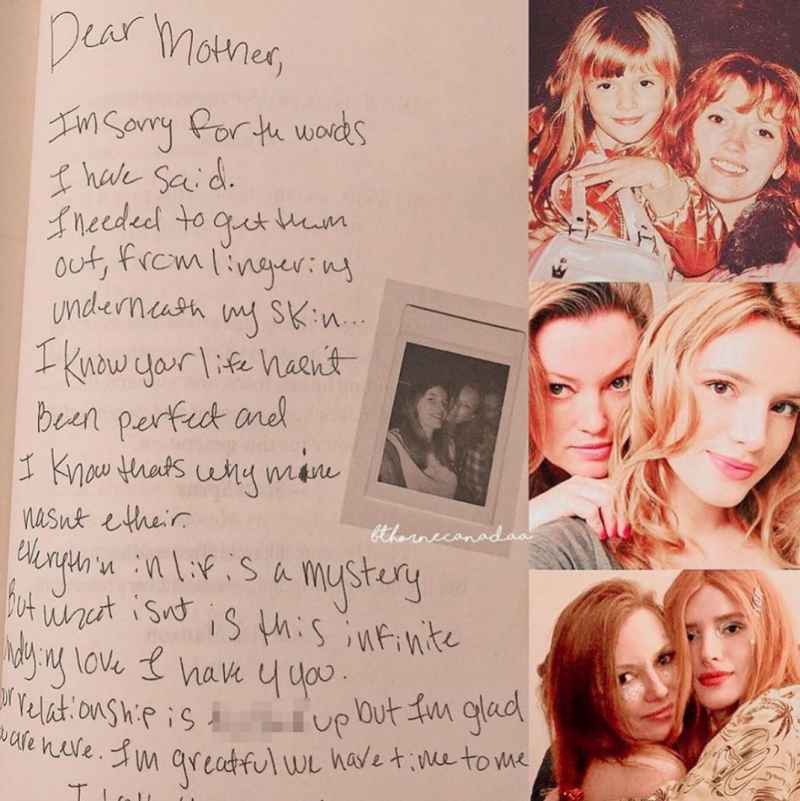 Dear Mother,
I'm sorry for the words
I have said.
I needed to get them
out, from lingering
underneath my skin...
I know your life hasn't
Been perfect and
I know thats why mine
hasnt etheir.
everythin in lif is a mystery
But what isnt is this infinite
undying love I have 4 you.
our relationship is up but I'm glad
you are here. I'm greatful we have time to me
I
bthornecanadaa